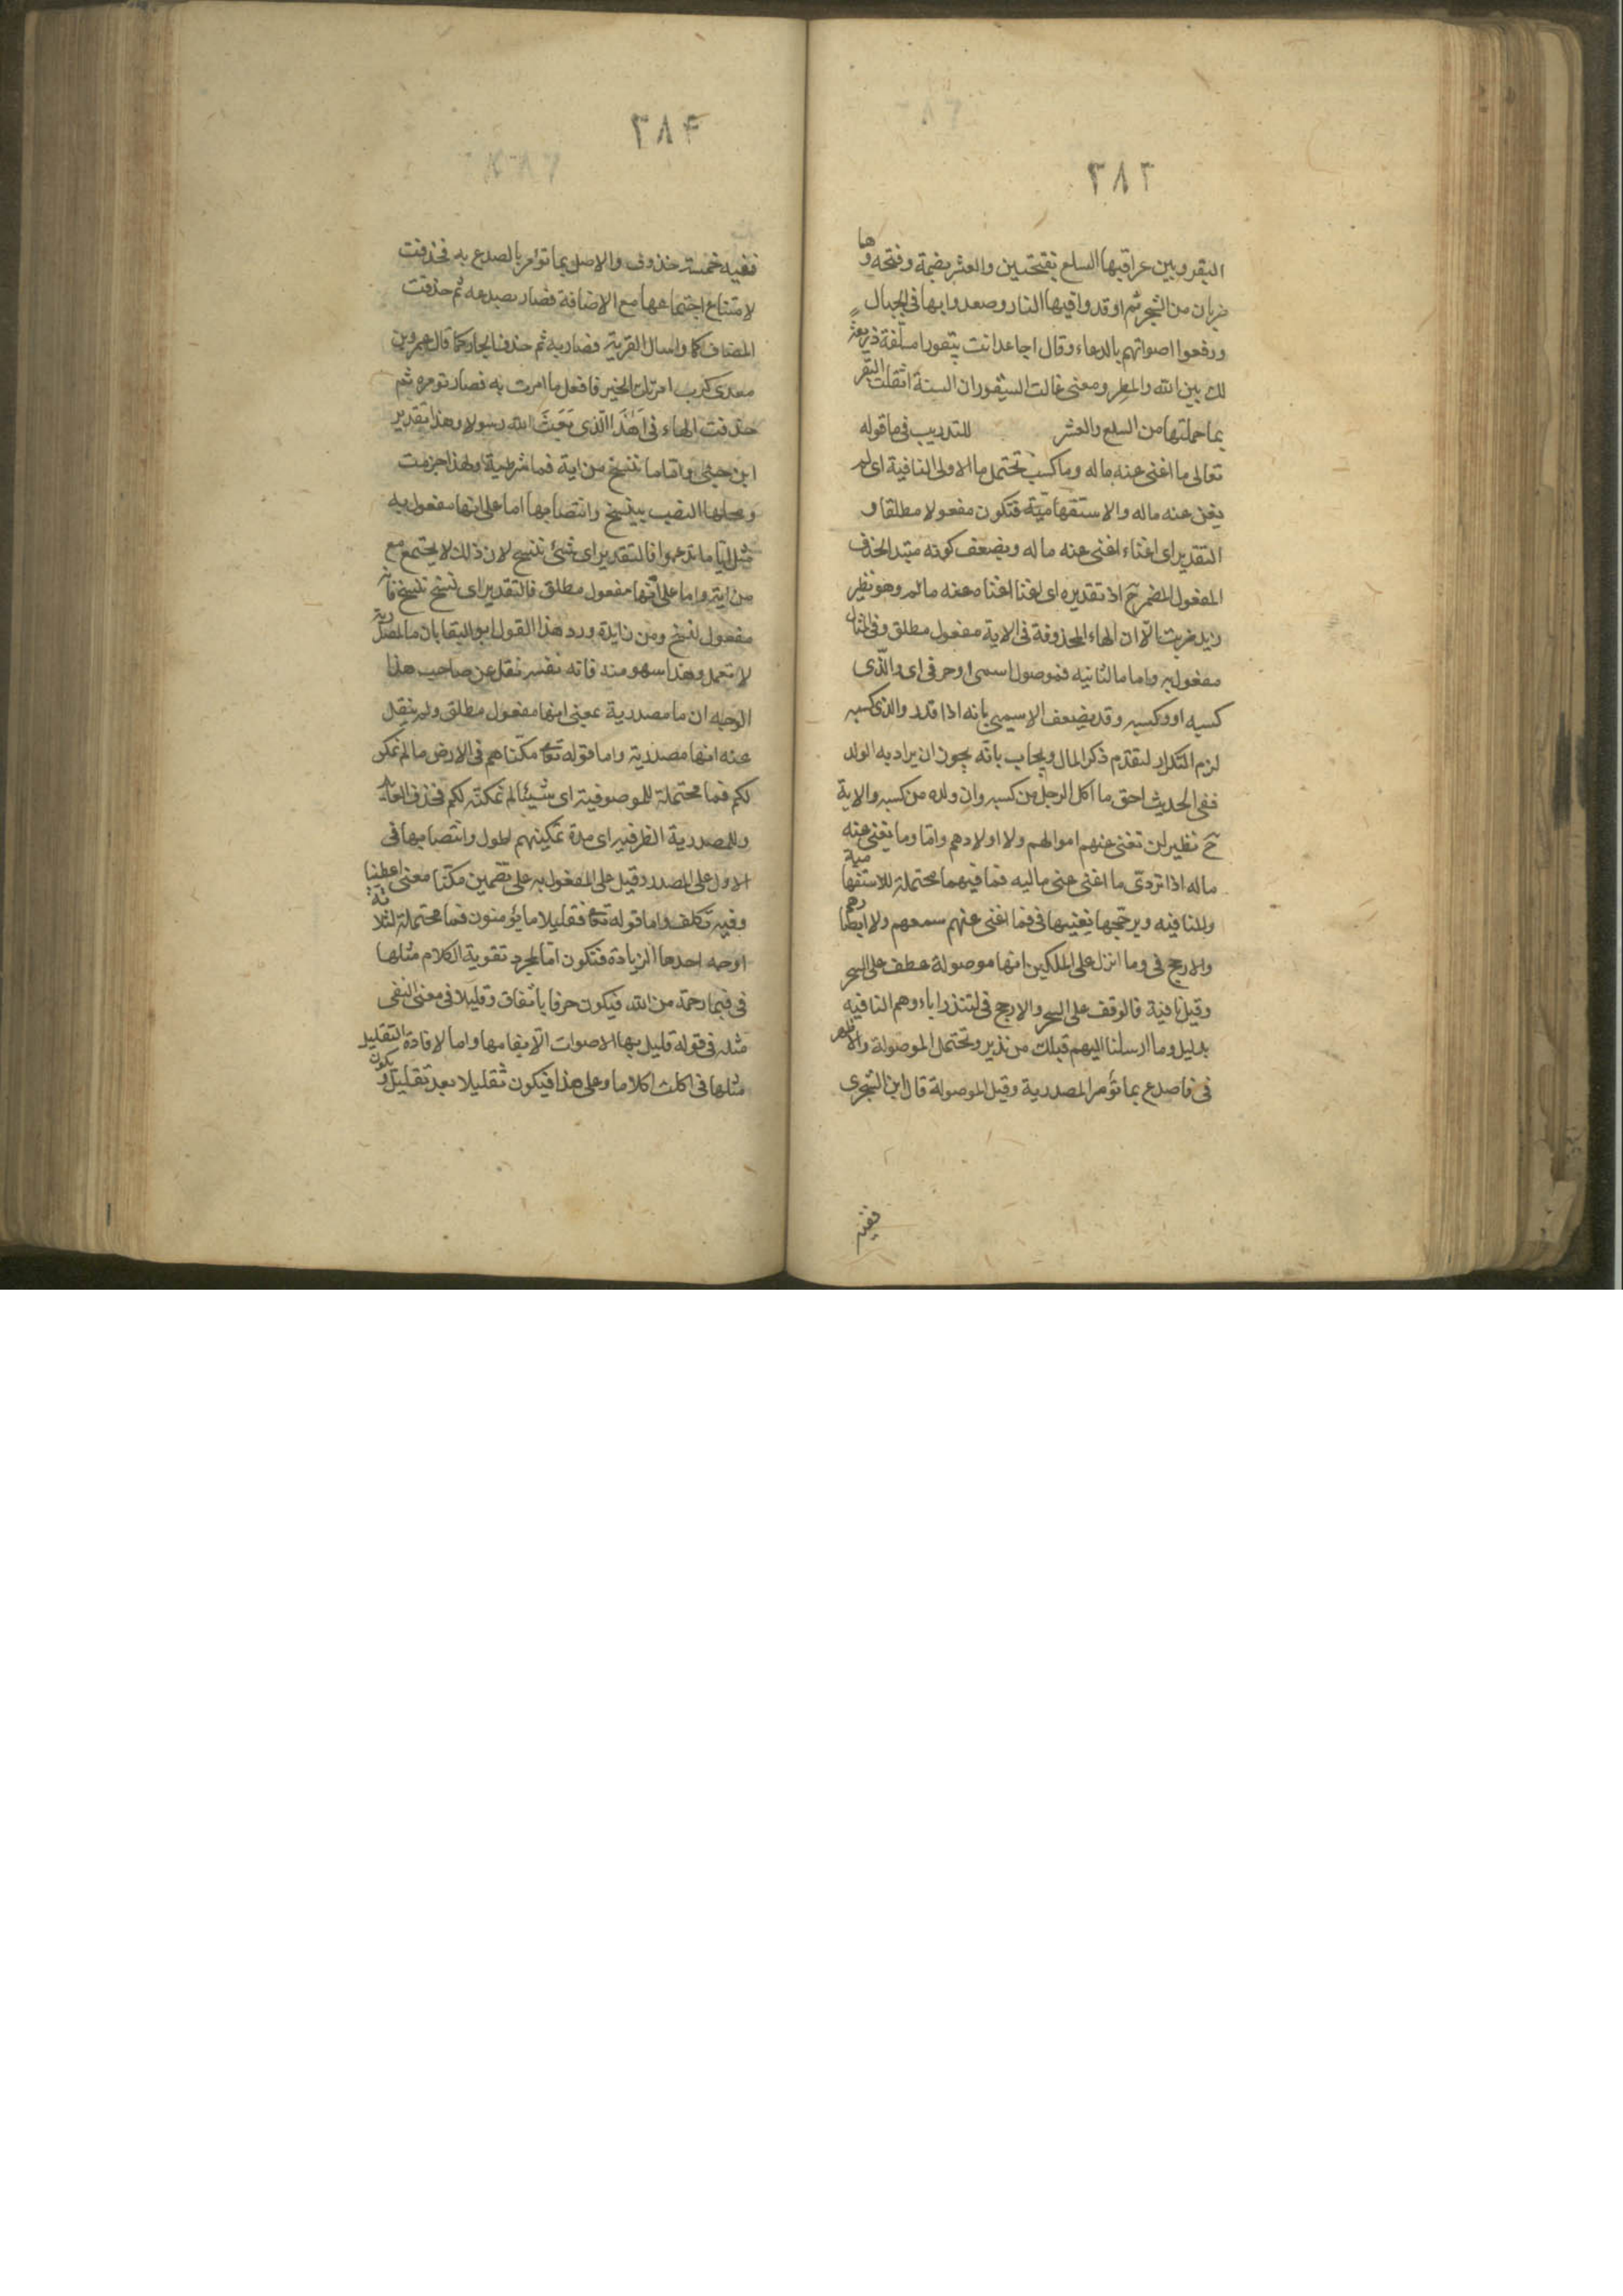 ٣٨٣
البقر وبين عراقيبها السلع بفتحتين والعشر بضمة وفتحه وها
ضربان من الشجر ثم اوقدوا فيها النار وصعدوا بها في الجبال
ورفعوا اصواتهم بالدعاء وقال اجاعل انت بيقورا مسلّعة ذريعة
لك بين الله والمطر ومعنى عالت البيقور ان السنة اثقلت البقر
بما حملتها من السلع والعشر للتدريب في ما قوله
تعالى ما اغنى عنه ماله وما كسب تحتمل ما الاولى النافية اى لم
يغن عنه ماله والاستفهامية فتكون مفعولا مطلقا و
التقدير اى اغناء اغنى عنه ماله ويضعف كونه مبتدا لحذف
المفعول المضمر ح اذ تقديره اى اغنا اغناه عنه ماله وهو نظير
زيد ضربت الّا ان الهاء المحذوفة في الاية مفعول مطلق وفي المثال
مفعول به واما ما الثانيه فموصول اسمى او حرفى اى والّذى
كسبه او وكسبه وقد يضعف الاسمى بانه اذا قدر والذى كسبه
لزم التكرار لتقدم ذكر المال ويجاب بانّه يجوز ان يراد به الولد
ففى الحديث احق ما اكل الرجل من كسبه وان ولده من كسبه والاية
ح نظير لن تغنى عنهم اموالهم ولا اولادهم وامّا وما يغنى عنه
ماله اذا تردّى ما اغنى عنى ماليه فما فيهما محتملة للاستفهامية
وللنافيه ويرجّحها تعينها في فما اغنى عنهم سمعهم ولا ابصارهم
والارجح في وما انزل على الملكين انها موصولة عطف على السحر
وقيل نافية فالوقف على السحر والارجح في لتنذر اباءوهم النافيه
بدليل وما ارسلنا اليهم قبلك من نذير وتحتمل الموصولة والاظهر
في فاصدع بما تؤمر المصدرية وقيل الموصولة قال ابن الشجرى
ففيه
٣٨۴
ففيه خمسة حذوف والاصل بما تؤمر بالصدع به فحذفت
لامتناع اجتماعها مع الاضافة فصار بصدعه ثم حذفت
المضاف كما واسال القرية فصار به ثم حذف الجار كما قال عمرو بن
معدى كرب امرتك الخير فافعل ما امرت به فصار تومره ثم
حذفت الهاء في اَهٰذَا الّذى بَعَثَ الله رسولا وهذا تقدير
ابن جنى وامّا ما ننسخ من اية فما شرطية ولهذا جزمت
ومحلها النصب بننسخ وانتصابها اما على انها مفعول به
مثل ايّا ما تدعوا فالتقدير اى شئ ننسخ لان ذلك لا يجتمع مع
من اية واما على انّها مفعول مطلق فالتقدير اى نسخ ننسخ فاية
مفعول ننسخ ومن زايدة ورد هذا القول ابو البقا بان ما المصدرية
لا تعمل وهذا سهو منه فانه نفسه نقل عن صاحب هذا
الوجه ان ما مصدرية بمعنى انها مفعول مطلق ولم ينقل
عنه انها مصدرية واما قوله تعا مكّناهم في الارض ما لم نمكن
لكم فما محتملة للموصوفية اى شيئا لم نمكنه لكم فحذف العائد
وللمصدرية الظرفية اى مدة تمكينهم اطول وانتصابها في
الاول على المصدر وقيل على المفعول به على تضمين مكّنا معنى اعطينا
وفيه تكلف واما قوله تعا فقليلا ما يؤمنون فما محتملة لثلاثة
اوجه احدها الزيادة فتكون امّا لمجرد تقوية الكلام مثلها
في فبما رحمة من الله فيكون حرفا باتفاق وقليلا في معنى النفى
مثله في قوله قليل بها الاصوات الّا بغامها واما لافادة التقليل
مثلها في اكلت اكلا ما وعلى هذا فيكون تقليلا بعد تقليل ويكون